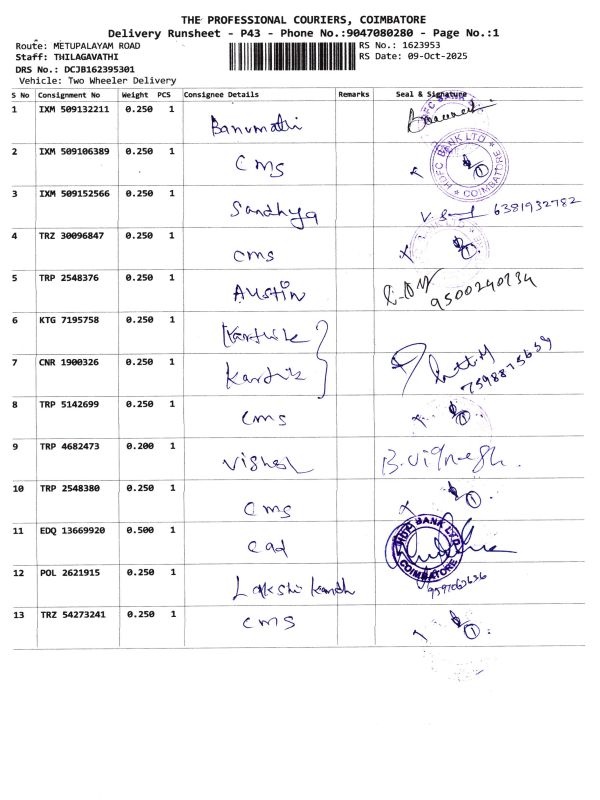 THE PROFESSIONAL COURIERS, COIMBATORE
Delivery Runsheet - P43 - Phone No.:9047080280 - Page No.:1
Route: METUPALAYAM ROAD
RS No.: 1623953
Staff: THILAGAVATHI
RS Date: 09-Oct-2025
DRS No.: DCJB162395301
Vehicle: Two Wheeler Delivery
S No Consignment No Weight PCS Consignee Details Remarks Seal & Signature
1 IXM 509132211 0.250 1 Banumathi
2 IXM 509106389 0.250 1 CMS HDFC BANK LTD COIMBATORE
3 IXM 509152566 0.250 1 Sandhya 6381932782
4 TRZ 30096847 0.250 1 CMS
5 TRP 2548376 0.250 1 Austin
6 KTG 7195758 0.250 1 Karthik
7 CNR 1900326 0.250 1 Karthik 7598875659
8 TRP 5142699 0.250 1 CMS
9 TRP 4682473 0.200 1 B. Vignesh.
10 TRP 2548380 0.250 1 CMS
11 EDQ 13669920 0.500 1 Cad HDFC BANK LTD COIMBATORE
12 POL 2621915 0.250 1
13 TRZ 54273241 0.250 1 CMS